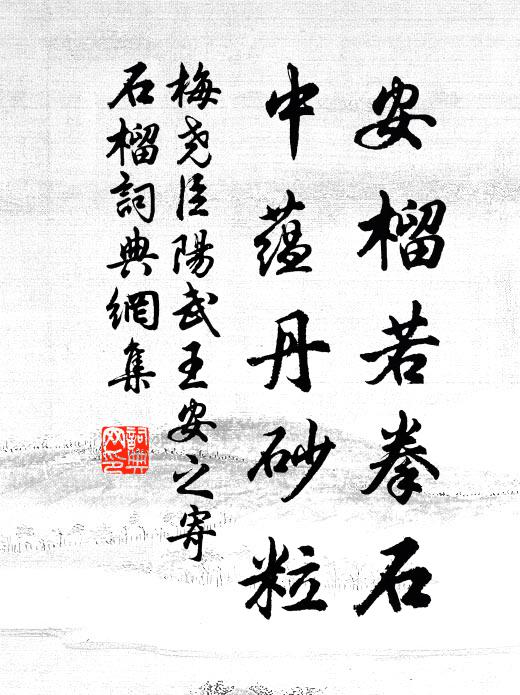 安榴若拳石
中蕴丹砂粒
梅尧臣陽武王安之寄
石榴詞典網集
詞典網印